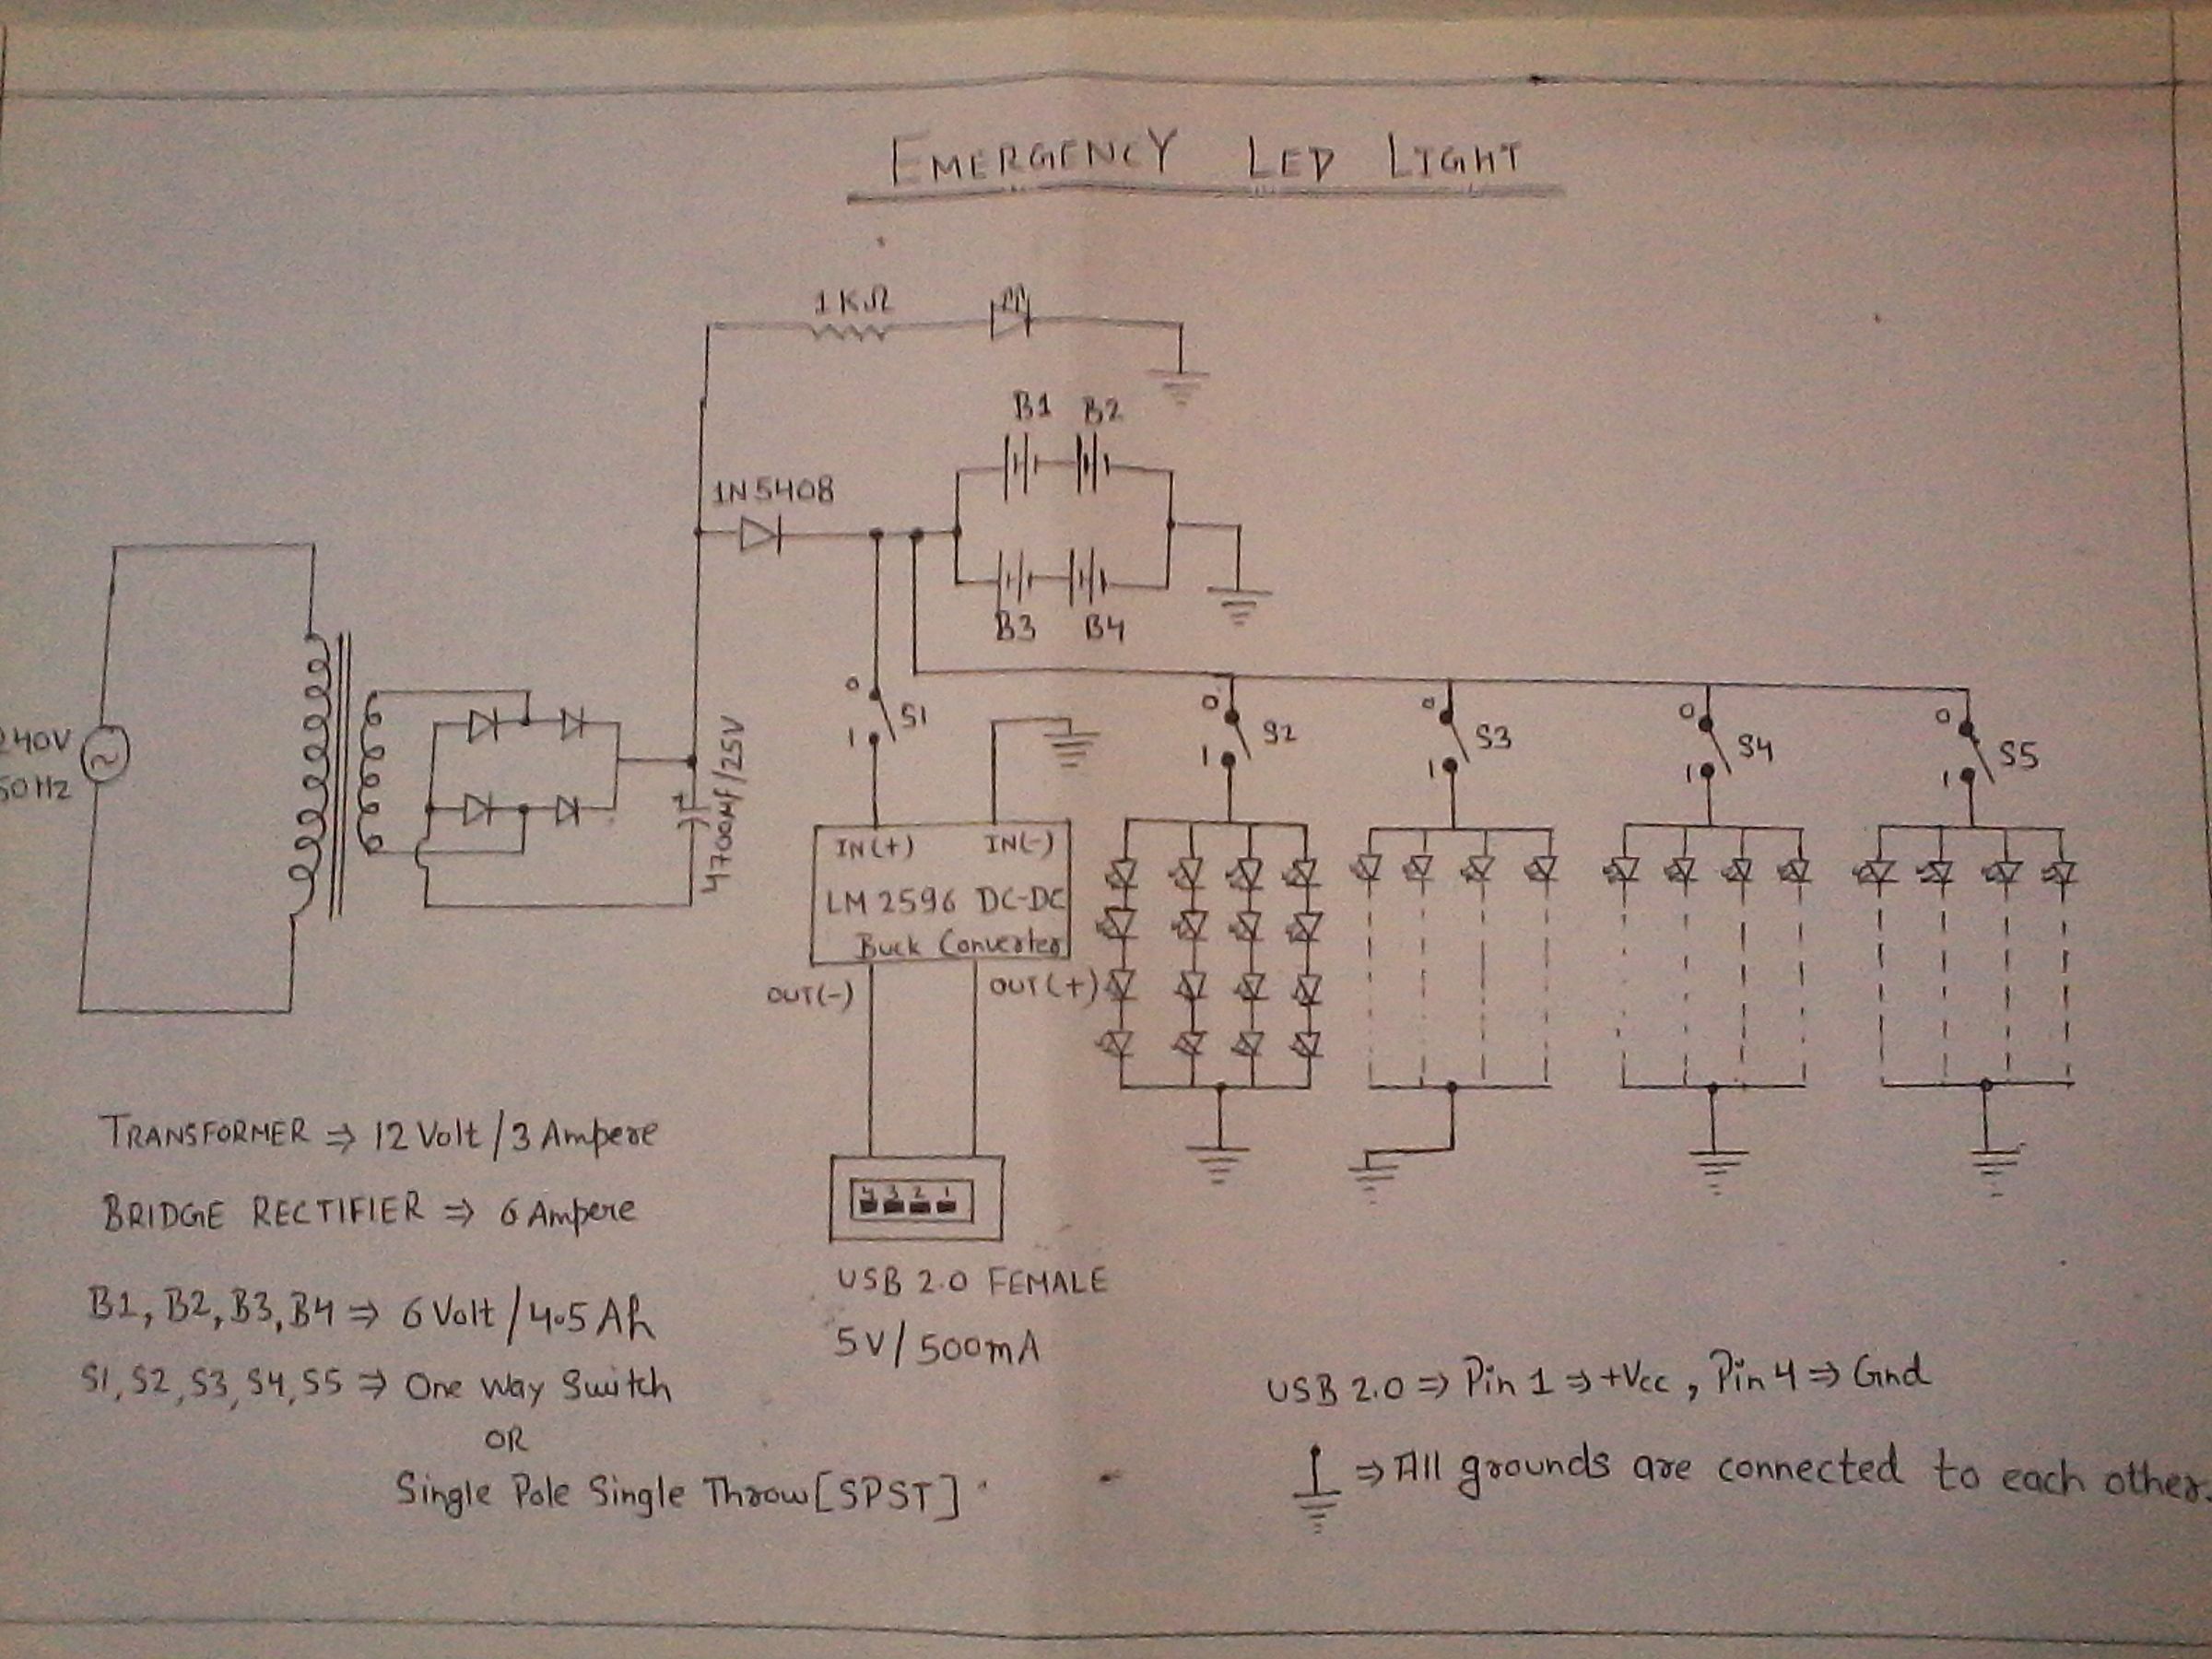 EMERGENCY LED LIGHT
1KΩ
B1 B2
1N5408
B3 B4
240V
50Hz
4700μf/25V
0
S1
1
0
S2
1
0
S3
1
0
S4
1
0
S5
1
IN(+) IN(-)
LM 2596 DC-DC
Buck Converter
OUT(-) OUT(+)
4 3 2 1
USB 2.0 FEMALE
5V/500mA
TRANSFORMER ⇒ 12 Volt/3 Ampere
BRIDGE RECTIFIER ⇒ 6 Ampere
B1, B2, B3, B4 ⇒ 6 Volt/4.5 Ah
S1, S2, S3, S4, S5 ⇒ One Way Switch
OR
Single Pole Single Throw [SPST]
USB 2.0 ⇒ Pin 1 ⇒ +Vcc, Pin 4 ⇒ Gnd
⇒ All grounds are connected to each other.